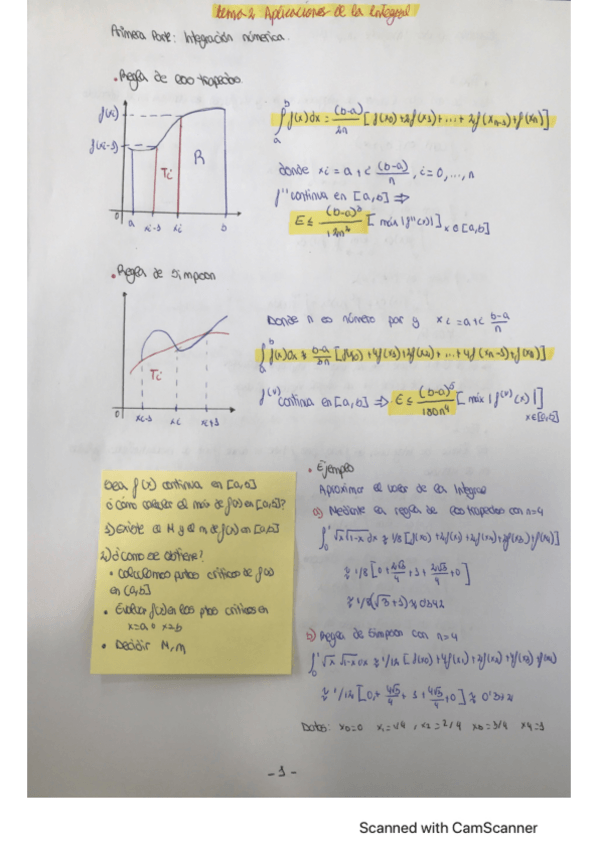 Tema 2 Aplicaciones de la Integral
Primera Parte: Integración númerica.
• Regla de los trapecios
f(xi)
f(xi-1)
Ti
R
0
a
xi-1
xi
b
∫_a^b f(x)dx = (b-a)/2n [f(x0)+2f(x1)+...+2f(xn-1)+f(xn)]
donde xi = a+i (b-a)/n , i=0,...,n
f'' continua en [a,b] ⇒
E ≤ (b-a)³/12n² [máx |f''(x)|] x∈[a,b]
• Regla de Simpson
Ti
0
xi-1
xi
xi+1
Donde n es número par y xi = a+i b-a/n
∫_a^b f(x)dx ≈ b-a/3n [f(x0)+4f(x1)+2f(x2)+...+4f(xn-1)+f(xn)]
f^(IV) continua en [a,b] ⇒ E ≤ (b-a)⁵/180n⁴ [máx |f^(IV)(x)|] x∈[a,b]
Sea f(x) continua en [a,b]
¿Cómo calcular el máx de f(x) en [a,b]?
1) Existe el M y el m de f(x) en [a,b]
2) ¿Cómo se obtiene?
• Calculamos ptos críticos de f(x)
en (a,b]
• Evaluar f(x) en los ptos críticos en
x=a o x=b
• Decidir M, m
• Ejemplo
Aproximar el valor de la Integral
a) Mediante la regla de los trapecios con n=4
∫_0^1 √x √1-x dx ≈ 1/8 [f(x0)+2f(x1)+2f(x2)+2f(x3)+f(x4)]
≈ 1/8 [0+ 2√3/4 + 1 + 2√3/4 +0]
≈ 1/8(√3+1) ≈ 0'342
b) Regla de Simpson con n=4
∫_0^1 √x √1-x dx ≈ 1/12 [f(x0)+4f(x1)+2f(x2)+4f(x3) f(x4)]
≈ 1/12 [0,+ 4√3/4 + 1 + 4√3/4 +0]
Datos: x0=0 x1=1/4 , x2=2/4 x3=3/4 x4=1
- 1 -
Scanned with CamScanner